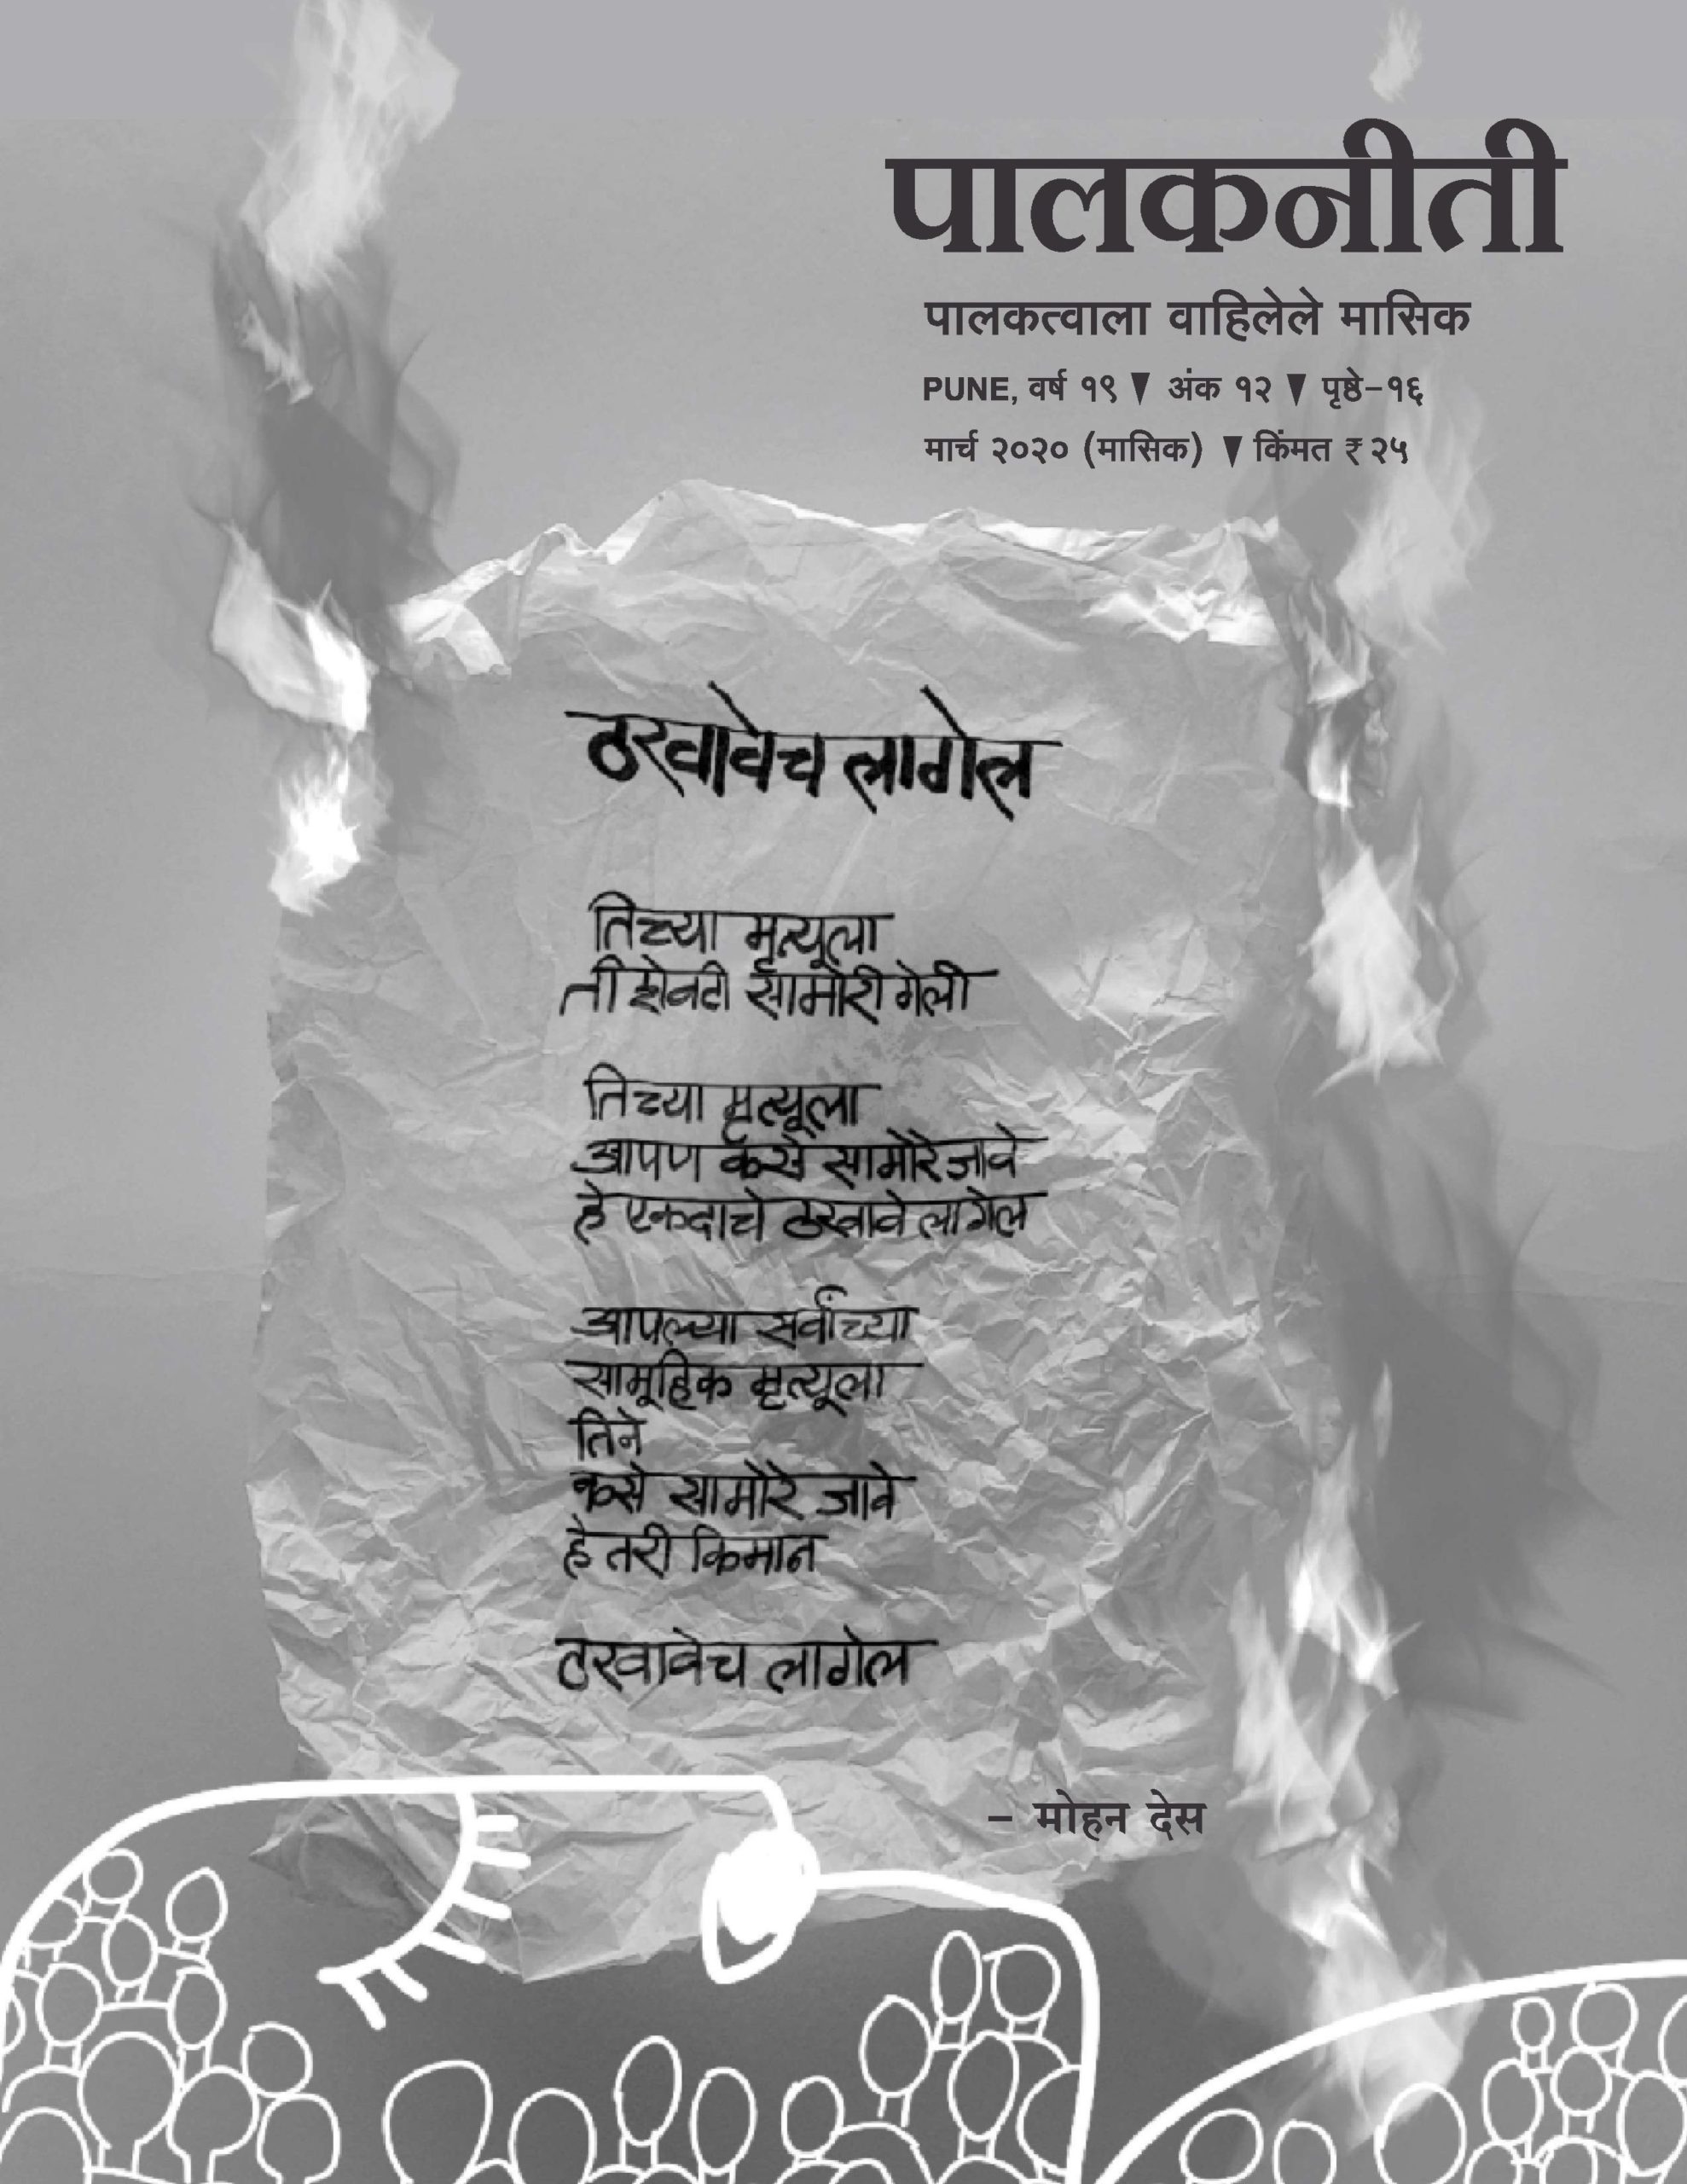 पालकनीती
पालकत्वाला वाहिलेले मासिक
PUNE, वर्ष १९ ▼ अंक १२ ▼ पृष्ठे-१६
मार्च २०२० (मासिक) ▼ किंमत ₹ २५
ठरवावेच लागेल
तिच्या मृत्यूला
ती शेवटी सामोरी गेली
तिच्या मृत्यूला
आपण कसे सामोरे जावे
हे एकदाचे ठरवावे लागेल
आपल्या सर्वांच्या
सामूहिक मृत्यूला
तिने
कसे सामोरे जावे
हे तरी किमान
ठरवावेच लागेल
- मोहन देस